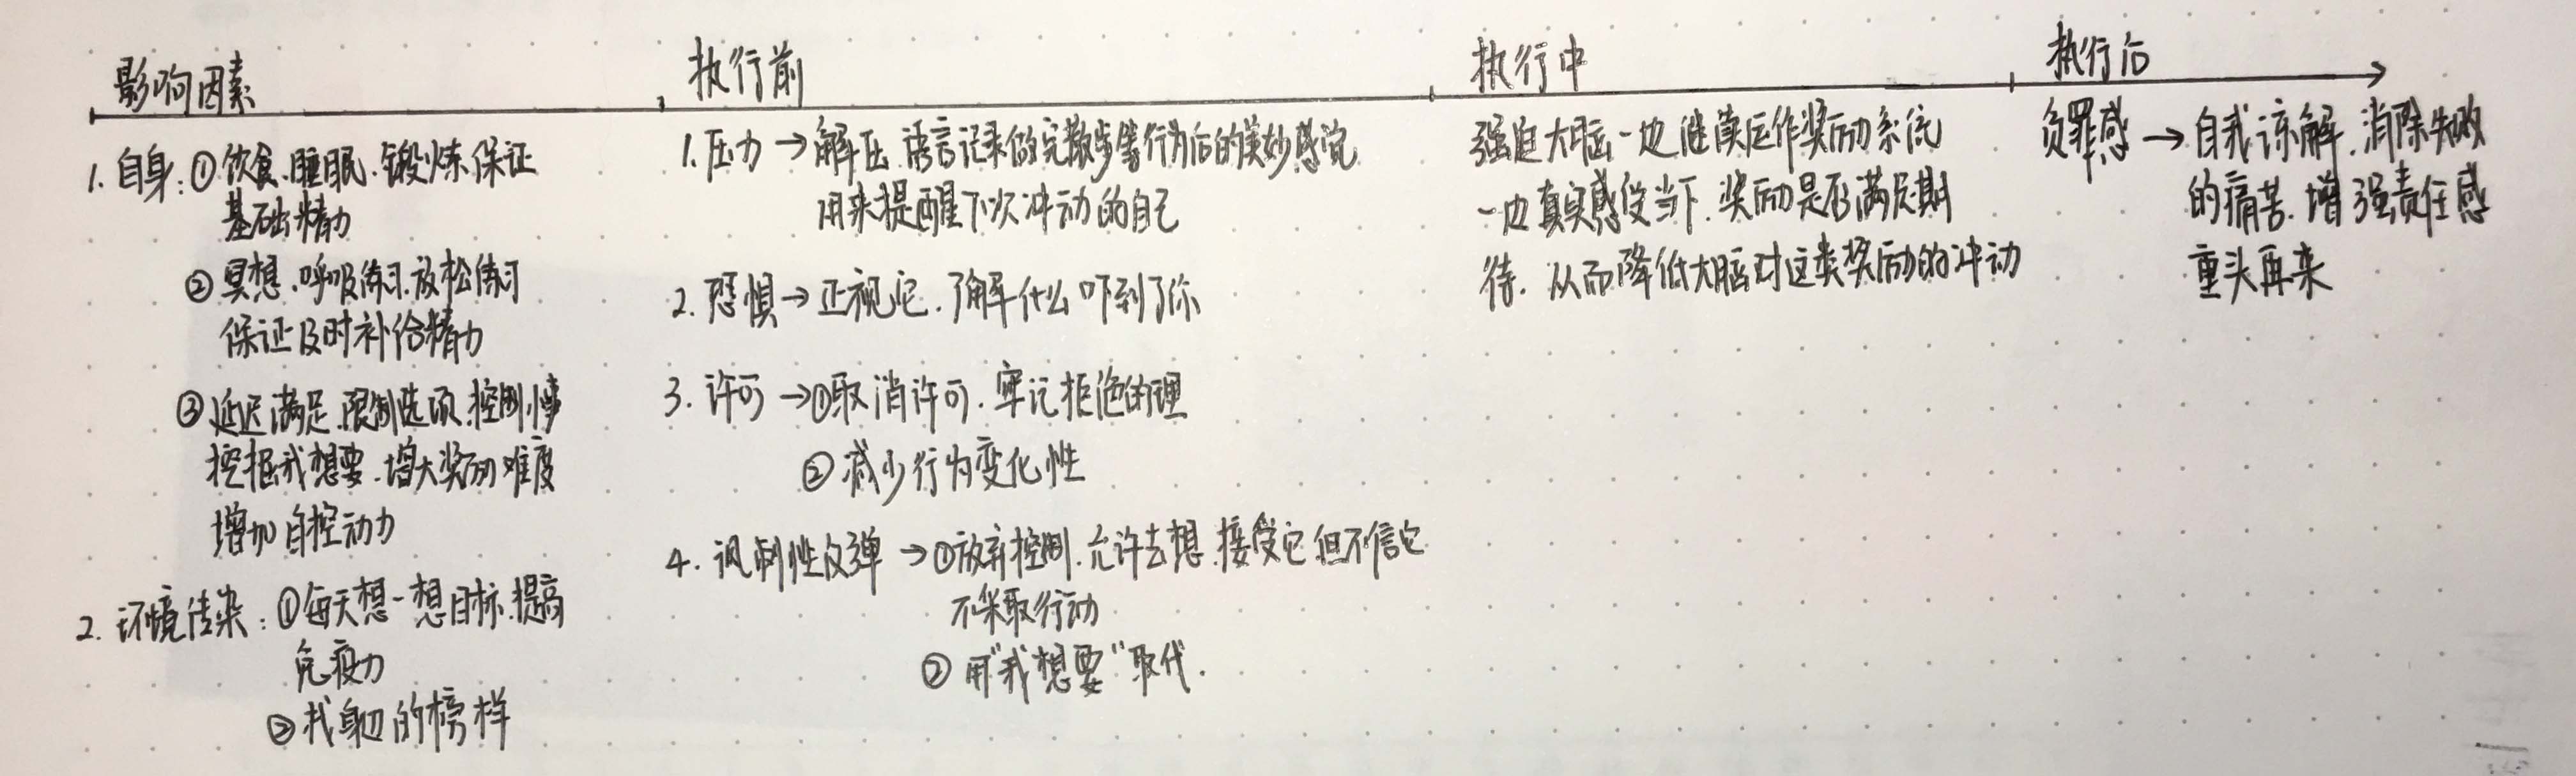 影响因素
1. 自身:①饮食、睡眠、锻炼、保证
基础精力
②冥想、呼吸练习、放松练习
保证及时补给精力
③延迟满足、限制选项、控制
挖掘我想要、增大奖励难度
增加自控动力
2. 环境传染:①每天想一想目标、提高
免疫力
②找身边的榜样
执行前
1. 压力→解压、语言记录做完散步等行为后的美妙感觉
用来提醒下次冲动的自己
2. 恐惧→正视它、了解什么吓到了你
3. 许可→①取消许可、牢记拒绝的理
②减少行为变化性
4. 讽刺性反弹→①放弃控制、允许去想、接受它但不信它
不采取行动
②用"我想要"取代.
执行中
强迫大脑一边继续运作奖励系统
一边真实感受当下、奖励是否满足期
待、从而降低大脑对这类奖励的冲动
执行后
负罪感→自我谅解、消除失败
的痛苦、增强责任感
重头再来